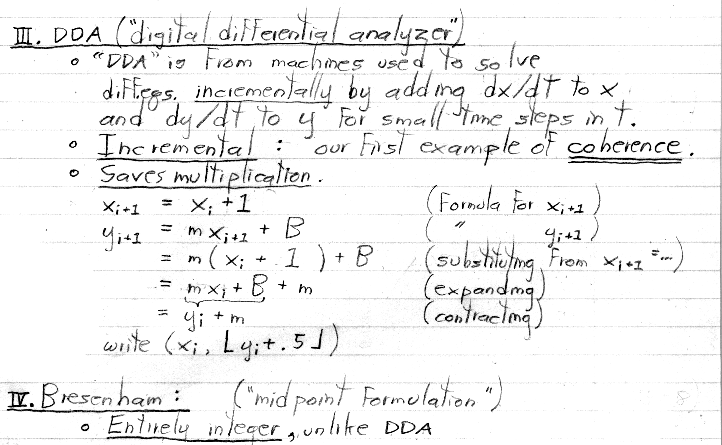 III. DDA ("digital differential analyzer")
∘ "DDA" is from machines used to solve
diffeqs. incrementally by adding dx/dt to x
and dy/dt to y for small time steps in t.
∘ Incremental : our first example of coherence.
∘ Saves multiplication.
xᵢ₊₁ = xᵢ + 1 (Formula for xᵢ₊₁)
yᵢ₊₁ = m xᵢ₊₁ + B ( " yᵢ₊₁)
= m (xᵢ + 1) + B (substituting from xᵢ₊₁ =...)
= m xᵢ + B + m (expanding)
= yᵢ + m (contracting)
write (xᵢ, ⌊yᵢ + .5⌋)
IV. Bresenham : ("midpoint formulation")
∘ Entirely integer, unlike DDA